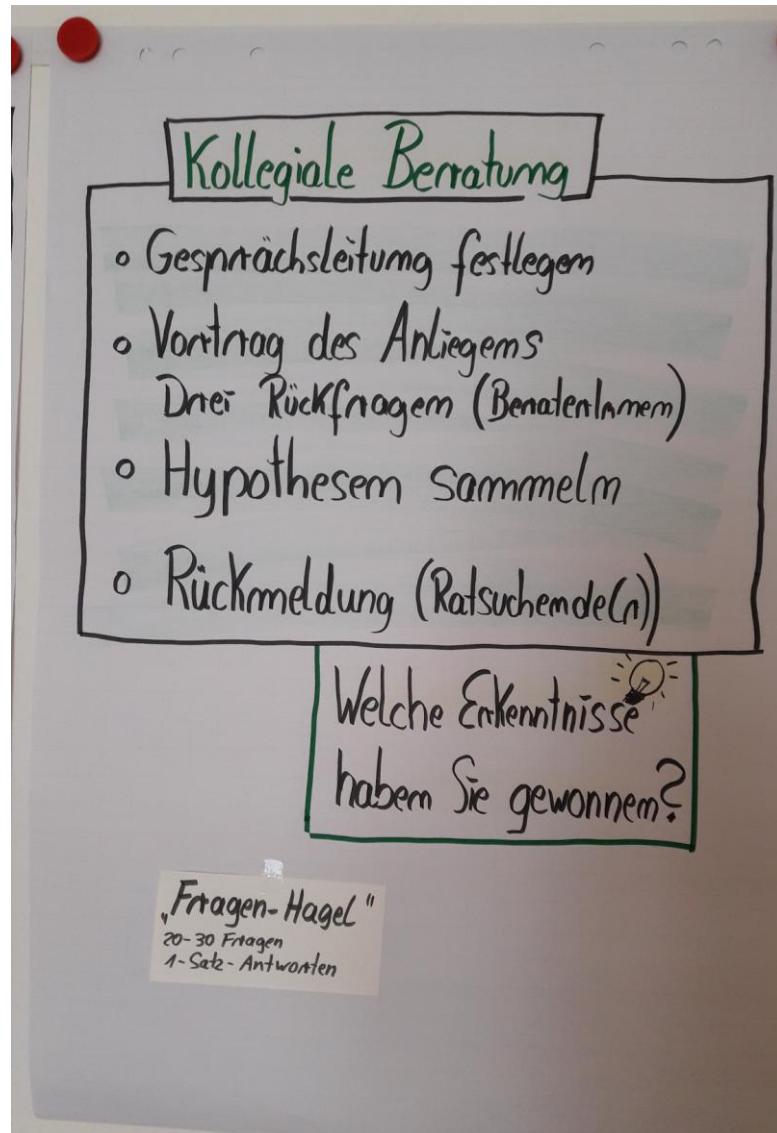 Kollegiale Beratung
Gesprächsleitung festlegen
Vortrag des Anliegens
Drei Rückfragen (BeraterInnen)
Hypothesen sammeln
Rückmeldung (Ratsuchende(r))
Welche Erkenntnisse
haben Sie gewonnen?
„Fragen-Hagel"
20-30 Fragen
1-Satz-Antworten